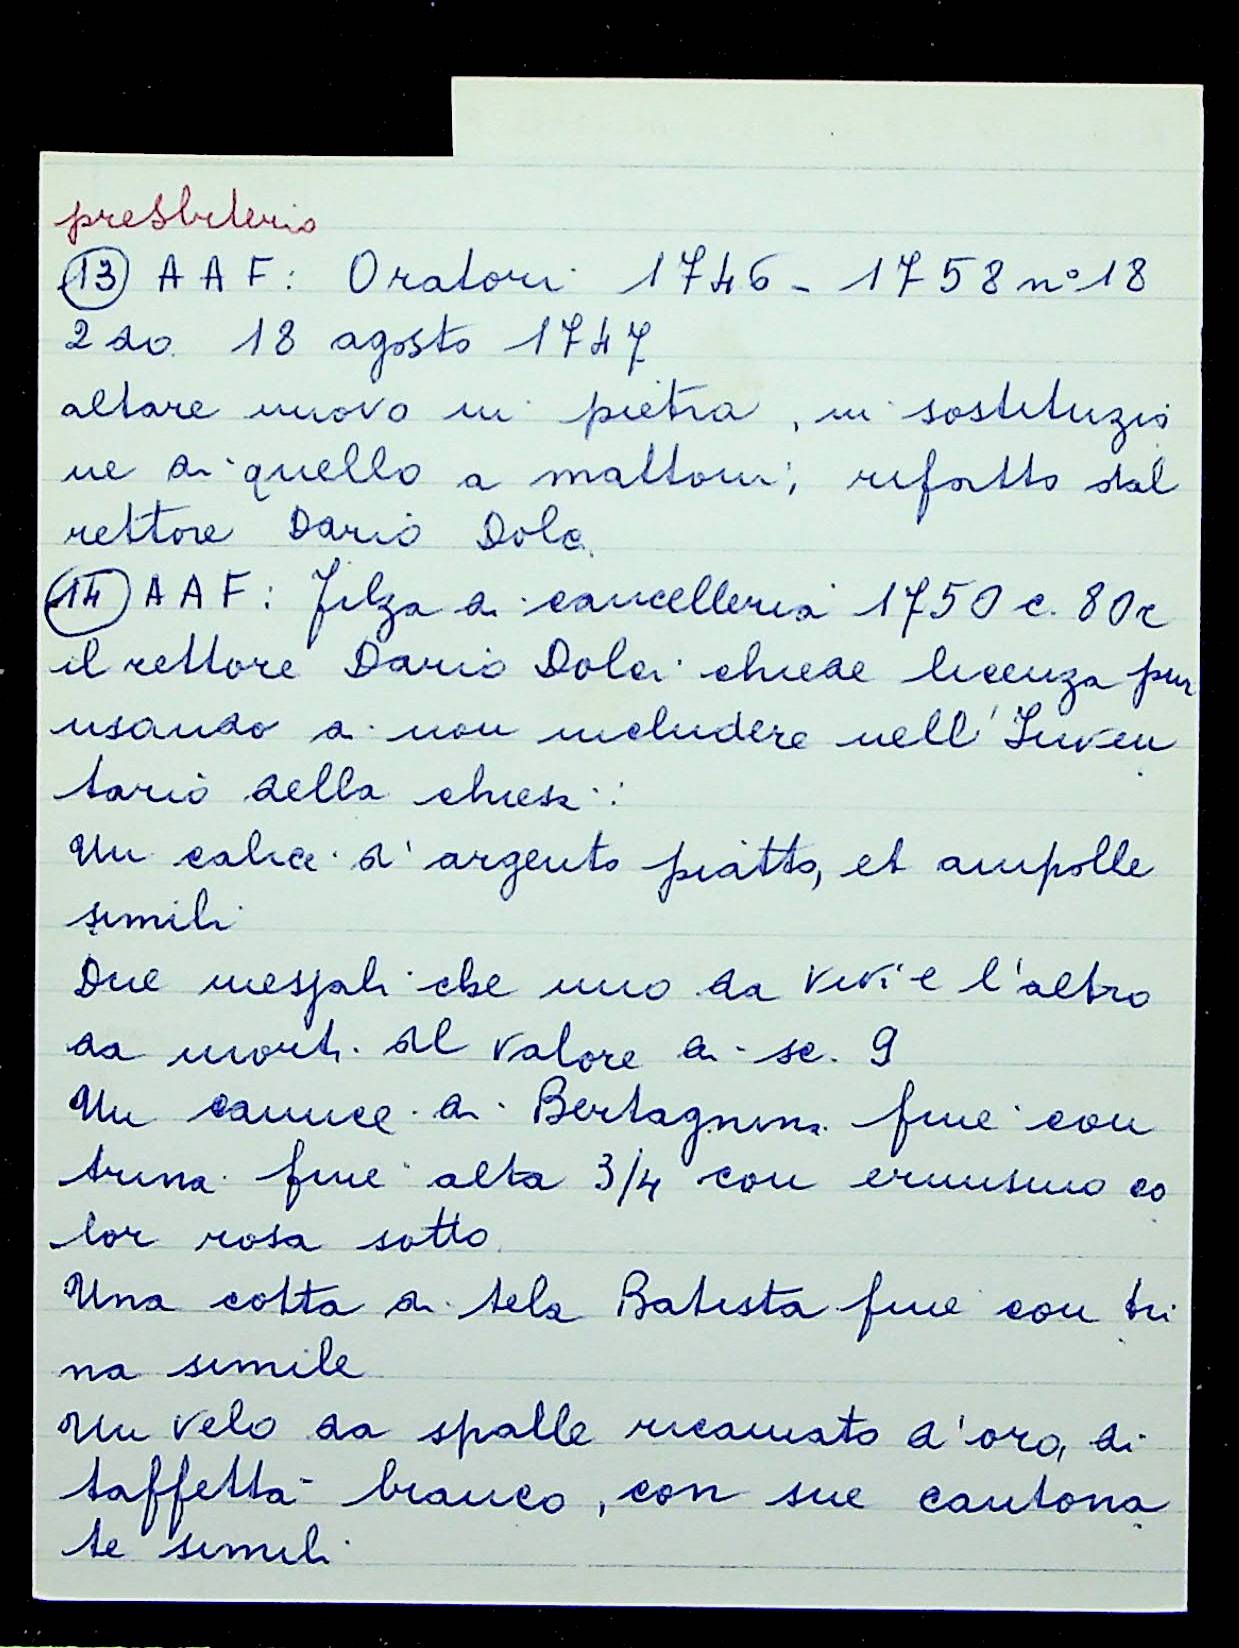 presbiterio
13 A A F: Oratori 1746 - 1758 n° 18
2do 18 agosto 1747
altare nuovo in pietra, in sostituzio
ne di quello a mattoni, rifatto dal
rettore Dario Dolci
14 A A F: Filza di cancelleria 1750 c. 80r
il rettore Dario Dolci chiede licenza pur
usando di non includere nell' Inven
tario della chiesa:
Un calice d'argento piatto, et ampolle
simili
Due messali che uno da vivi e l'altro
da morti del valore di sc. 9
Un camice di Bertagnina fine con
trina fine alta 3/4 con ermisino co
lor rosa sotto
Una cotta di tela Batista fine con tri
na simile
Un velo da spalle ricamato d'oro, di
taffetta bianco, con sue cantona
te simili